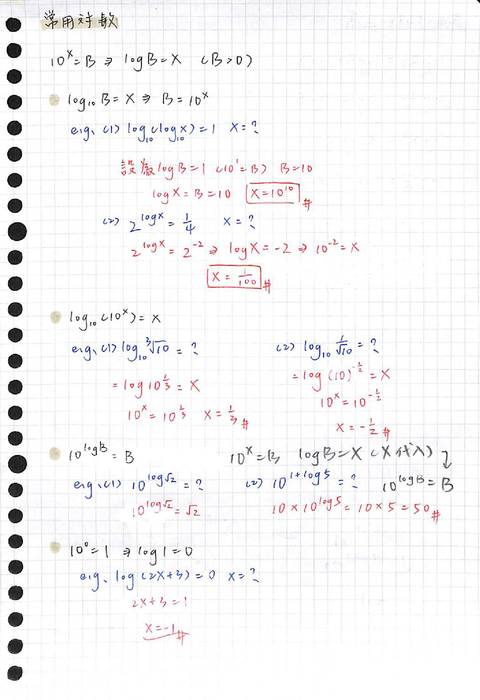 常用对数
10^x = B ⇒ log B = X (B>0)
log₁₀B = X ⇒ B = 10^x
eg. (1) log₁₀(log₁₀x) = 1 X = ?
設 log B = 1 (10¹ = B) B = 10
log X = B = 10 X = 10^10 #
(2) 2^logx = 1/4 X = ?
2^logx = 2^-2 ⇒ log X = -2 ⇒ 10^-2 = X
X = 1/100 #
log₁₀(10^x) = X
eg. (1) log₁₀ ³√10 = ?
= log 10^1/3 = X
10^x = 10^1/3 X = 1/3 #
(2) log₁₀ 1/√10 = ?
= log (10)^-1/2 = X
10^x = 10^-1/2
X = -1/2 #
10^logB = B 10^x = B log B = X (X代入)
10^logB = B
eg. (1) 10^log√2 = ?
10^log√2 = √2
(2) 10^1+log5 = ?
10 × 10^log5 = 10 × 5 = 50 #
10⁰ = 1 ⇒ log 1 = 0
eg. log (2X+3) = 0 X = ?
2X+3 = 1
X = -1 #